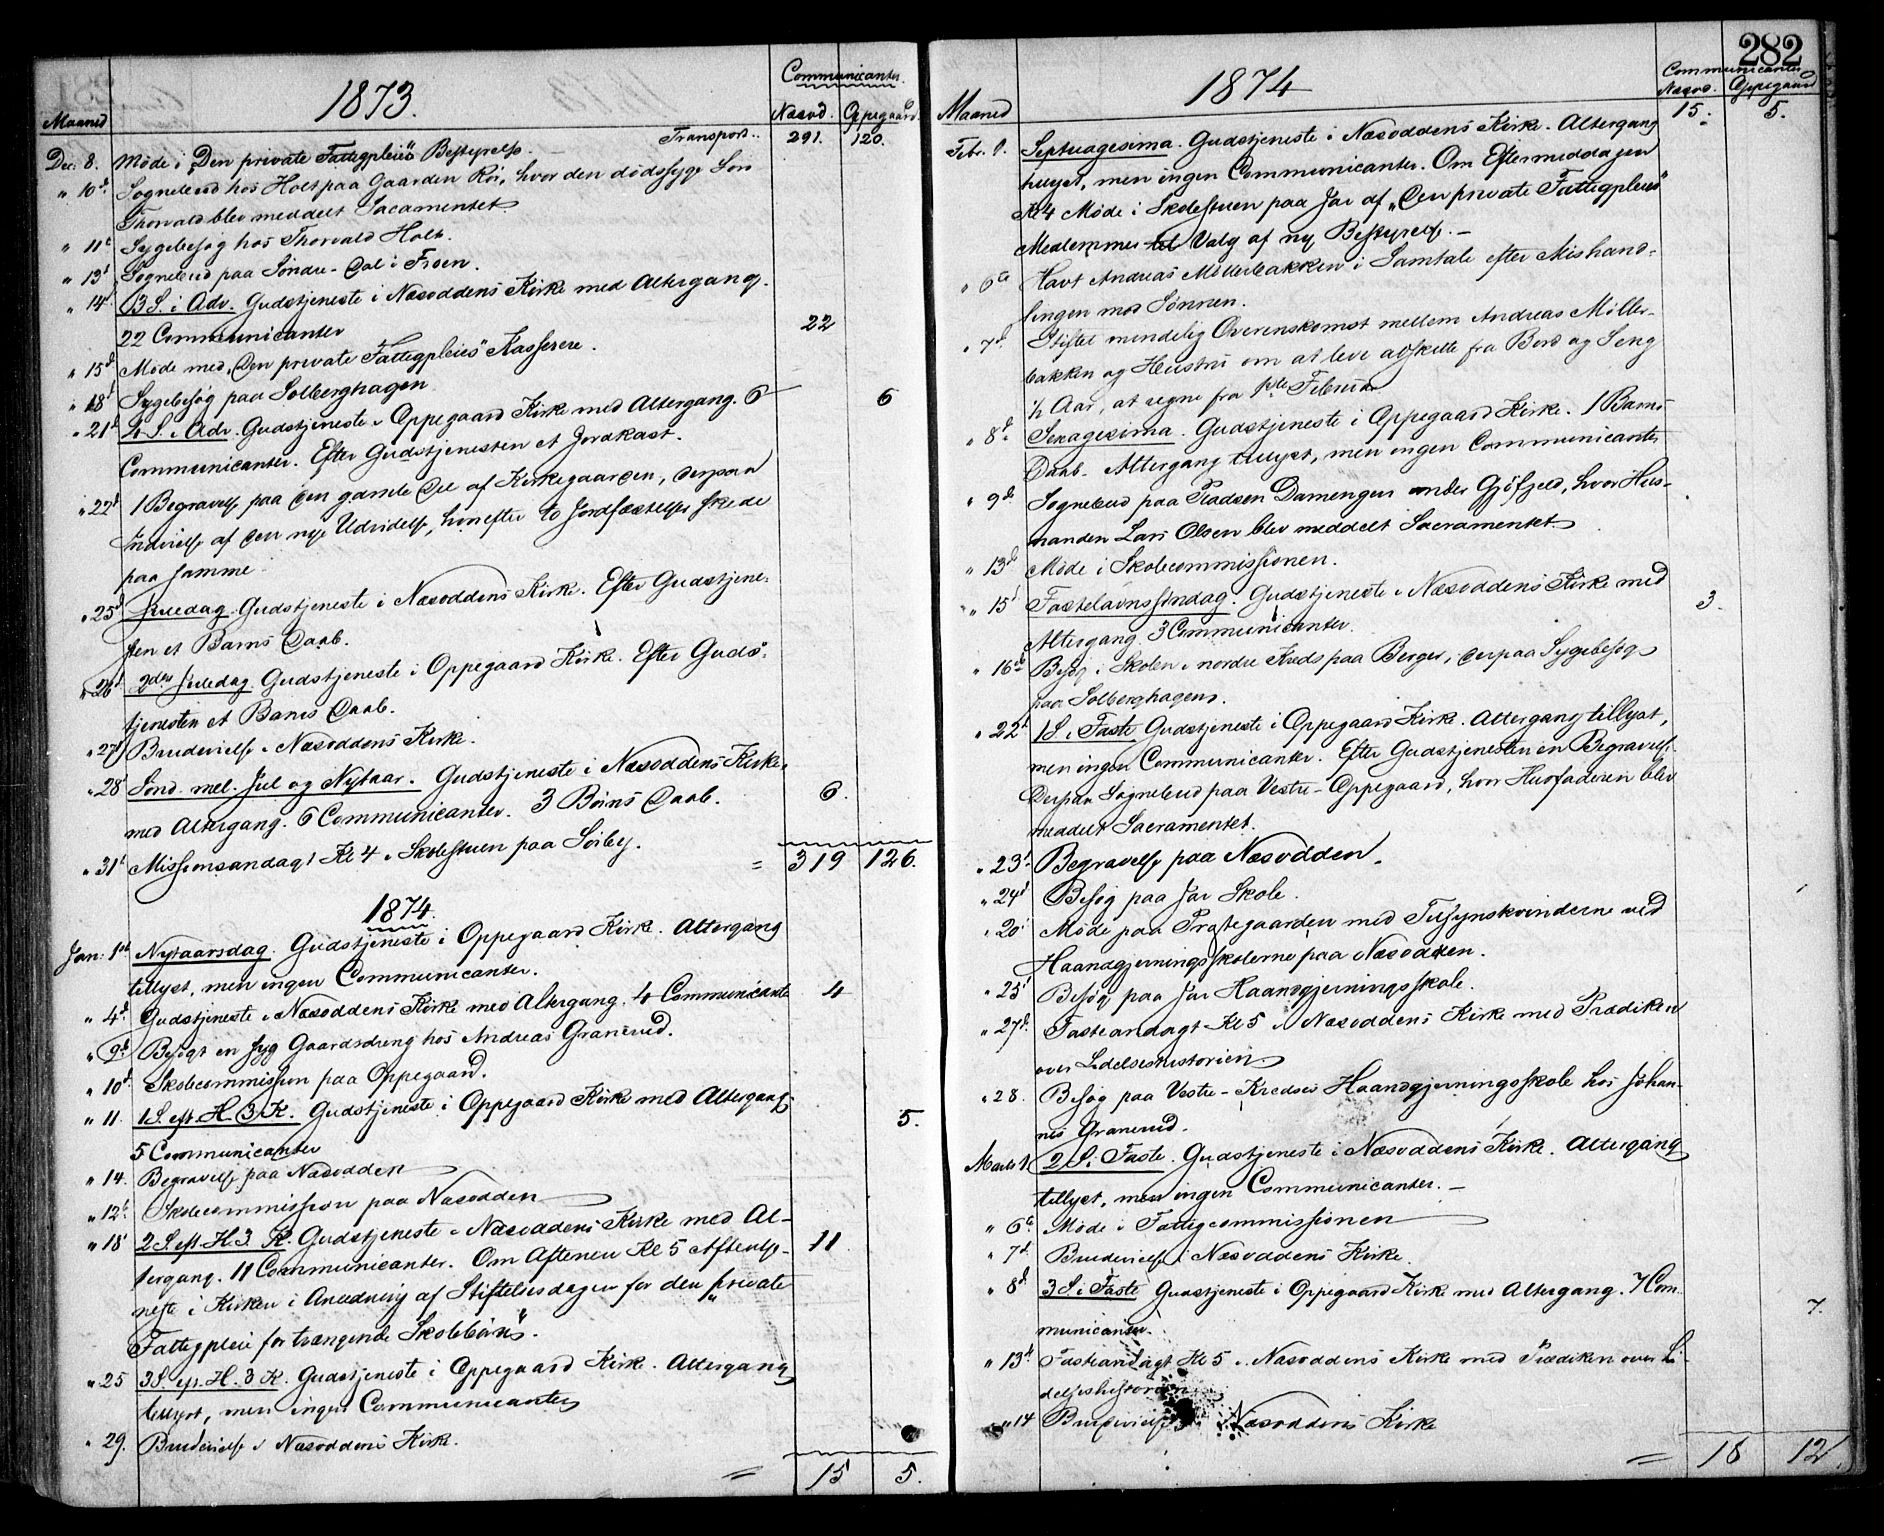 1873.
Communicanter.
Maaned
Næsod. Oppegaard.
Transport.. 291. 120.
Dec. 8. Møde i „Den private Fattigpleies" Bestyrelse.
" 10d Sognebud hos Holt paa Gaarden Röi, hvor den dödssyge Søn
Thorvald blev meddelt Sacramentet.
" 11t Sygebesøg hos Thorvald Holt.
" 13d Sognebud paa Søndre-Dal i Froen.
" 14d 3 S. i Adv. Gudstjeneste i Næsoddens Kirke med Altergang.
22 Communicanter 22
" 15d Møde med „Den private Fattigpleies" Kasserere.
" 18d Sygebesøg paa Solberghagen
" 21d 4 S. i Adv. Gudstjeneste i Oppegaard Kirke med Altergang. 6 6
Communicanter. Efter Gudstjenesten et Jordkast.
" 22d 1 Begravelse paa den gamle Del af Kirkegaarden, derpaa
Indvielse af den nye Udvidelse, hvorefter to Jordfæstelser skede
paa samme.
" 25d Juledag. Gudstjeneste i Næsoddens Kirke. Efter Gudstjene-
sten et Barns Daab.
" 26d 2den Juledag Gudstjeneste i Oppegaard Kirke. Efter Guds-
tjenesten et Barns Daab.
" 27d Brudevielse i Næsoddens Kirke.
" 28 Sønd. mel. Jul og Nytaar. Gudstjeneste i Næsoddens Kirke
med Altergang. 6 Communicanter. 3 Børns Daab. 6.
" 31t Missionsandagt Kl 4 i Skolestuen paa Sörby. = 319 126.
1874.
Jan: 1st Nytaarsdag. Gudstjeneste i Oppegaard Kirke. Altergang
tillyst, men ingen Communicanter.
" 4d Gudstjeneste i Næsoddens Kirke med Altergang. 4 Communicante 4
" 9d Besögt en syg Gaardsdreng hos Andreas Granerud.
" 10d Skolecommission paa Oppegaard.
" 11. 1 S. eft. H. 3 K. Gudstjeneste i Oppegaard Kirke med Altergang.
5 Communicanter 5.
" 14. Begravelse paa Næsodden
" 12t Skolecommission paa Næsodden
" 18 2 S. eft. H. 3. K. Gudstjeneste i Næsoddens Kirke med Al-
tergang. 11 Communicanter. Om Aftenen Kl 5 Aftentje- 11
neste i Kirken i Anledning af Stiftelsesdagen for den „private
Fattigpleie for trængende Skolebørn".
" 25 3 S. eft. H. 3 K. Gudstjeneste i Oppegaard Kirke. Altergang
tillyst, men ingen Communicanter
" 29. Brudevielse i Næsoddens Kirke.
= 15 5.
282
1874
Communicanter
Maaned
Næsod. Oppegaard
15. 5.
Febr. 1. Septuagesima. Gudstjeneste i Næsoddens Kirke. Altergang
tillyst, men ingen Communicanter. Om Eftermiddagen
Kl 4 Møde i Skolestuen paa Jar af „Den private Fattigpleies"
Medlemmer til Valg af ny Bestyrelse. —
" 6te Havt Andreas Møllerbakken i Samtale efter Mishand-
lingen mod Sønnen.
" 7d Stiftet mindelig Overenskomst mellem Andreas Møller-
bakken og Hustru om at leve adskilte fra Bord og Seng
½ Aar, at regne fra 1ste Februar
" 8d Sexagesima. Gudstjeneste i Oppegaard Kirke. 1 Barns
Daab. Altergang tillyst, men ingen Communicanter
" 9d Sognebud paa Pladsen Damengen under Gjøfjeld, hvor Hus-
manden Lars Olsen blev meddelt Sacramentet
" 13d Møde i Skolecommissionen.
" 15d Fastelavnssøndag. Gudstjeneste i Næsoddens Kirke med 3.
Altergang. 3 Communicanter.
" 16de Besøg i Skolen i nordre Kreds paa Berger, derpaa Sygebesøg
paa Solberghagen.
" 22d 1 S. i Faste Gudstjeneste i Oppegaard Kirke. Altergang tillyst,
men ingen Communicanter. Efter Gudstjenesten en Begravelse.
Derpaa Sognebud paa Vestre-Oppegaard, hvor Husfaderen blev
meddelt Sacramentet.
" 23d Begravelse paa Næsodden.
" 24d Besøg paa Jar Skole.
" 20d Møde paa Præstegaarden med Tilsynskvinderne ved
Haandgjerningsskolerne paa Næsodden.
" 25d Besøg paa Jar Haandgjerningsskole.
" 27d. Fasteandagt Kl 5 i Næsoddens Kirke med Prædiken
over Lidelseshistorien
" 28. Besøg paa Vestre-Kredses Haandgjerningsskole hos Johan-
nes Granerud.
Marts 1 2 S. i Faste. Gudstjeneste i Næsoddens Kirke. Altergang
tillyst, men ingen Communicanter. —
" 6te Møde i Fattigcommissionen
" 7d Brudevielse i Næsoddens Kirke.
" 8d 3 S. i Faste Gudstjeneste i Oppegaard Kirke med Altergang. 7 Com-
municanter. 7.
" 13d Fasteandagt Kl 5 i Næsoddens Kirke med Prædiken over Li-
delseshistorien
" 14 Brudevielse i Næsoddens Kirke
= 18 12